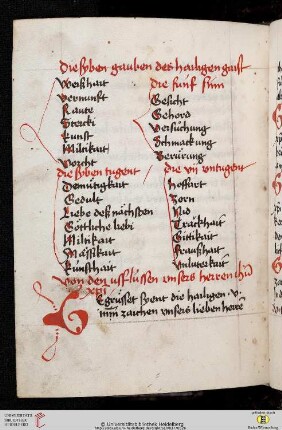 die syben gauben des hailigen gaist
Weißhait
Vernunft
Raute
Stercki
kunst
Miltikait
Vorcht
die fünf sinn
Gesicht
Gehörd
Versuchung
Schmackung
Berürung
die syben tugent
Demütigkait
Gedult
Liebe des nächsten
Göttliche liebi
Miltikait
Mässikait
künschait
die vii untugent
Hoffart
Zorn
Nid
Trackhait
Gitikait
Fraußhait
Unluterkait
Von den ußflüssen unsers herren
Egrüsset syent die hailigen
zaichen unsers lieben herre
Universitätsbibliothek Heidelberg